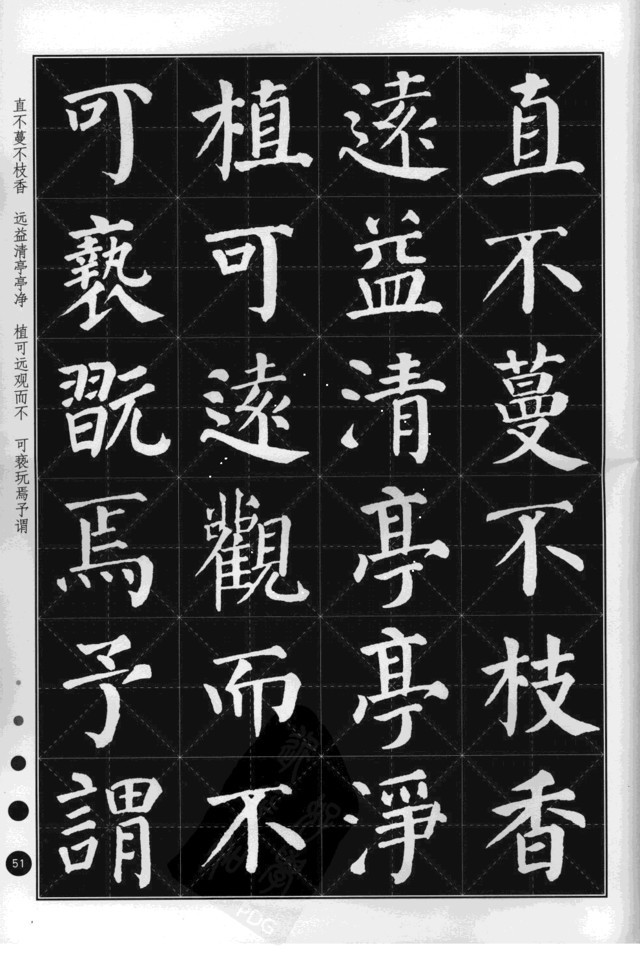 直不蔓不枝香
遠益清亭亭淨
植可遠觀而不
可褻翫焉予謂
直不蔓不枝香 远益清亭亭净 植可远观而不 可亵玩焉予谓
51
PDG